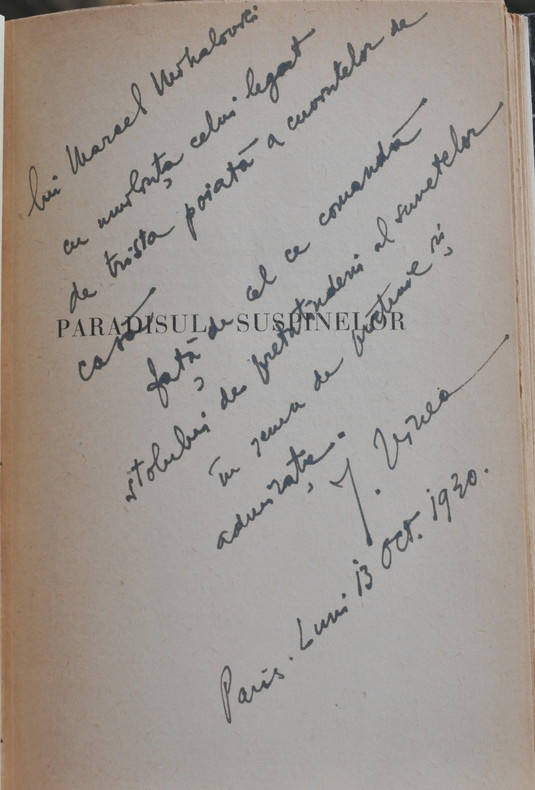 lui Marcel Mihalovici
cu umilința celui legat
de trista poiată a cuvintelor de
casă
PARADISUL SUSPINELOR
față de cel ce comandă
stolului de pretutindeni al sunetelor
în semn de prietenie și
admirație.
I. Vinea
Paris. Luni 13 Oct. 1930.